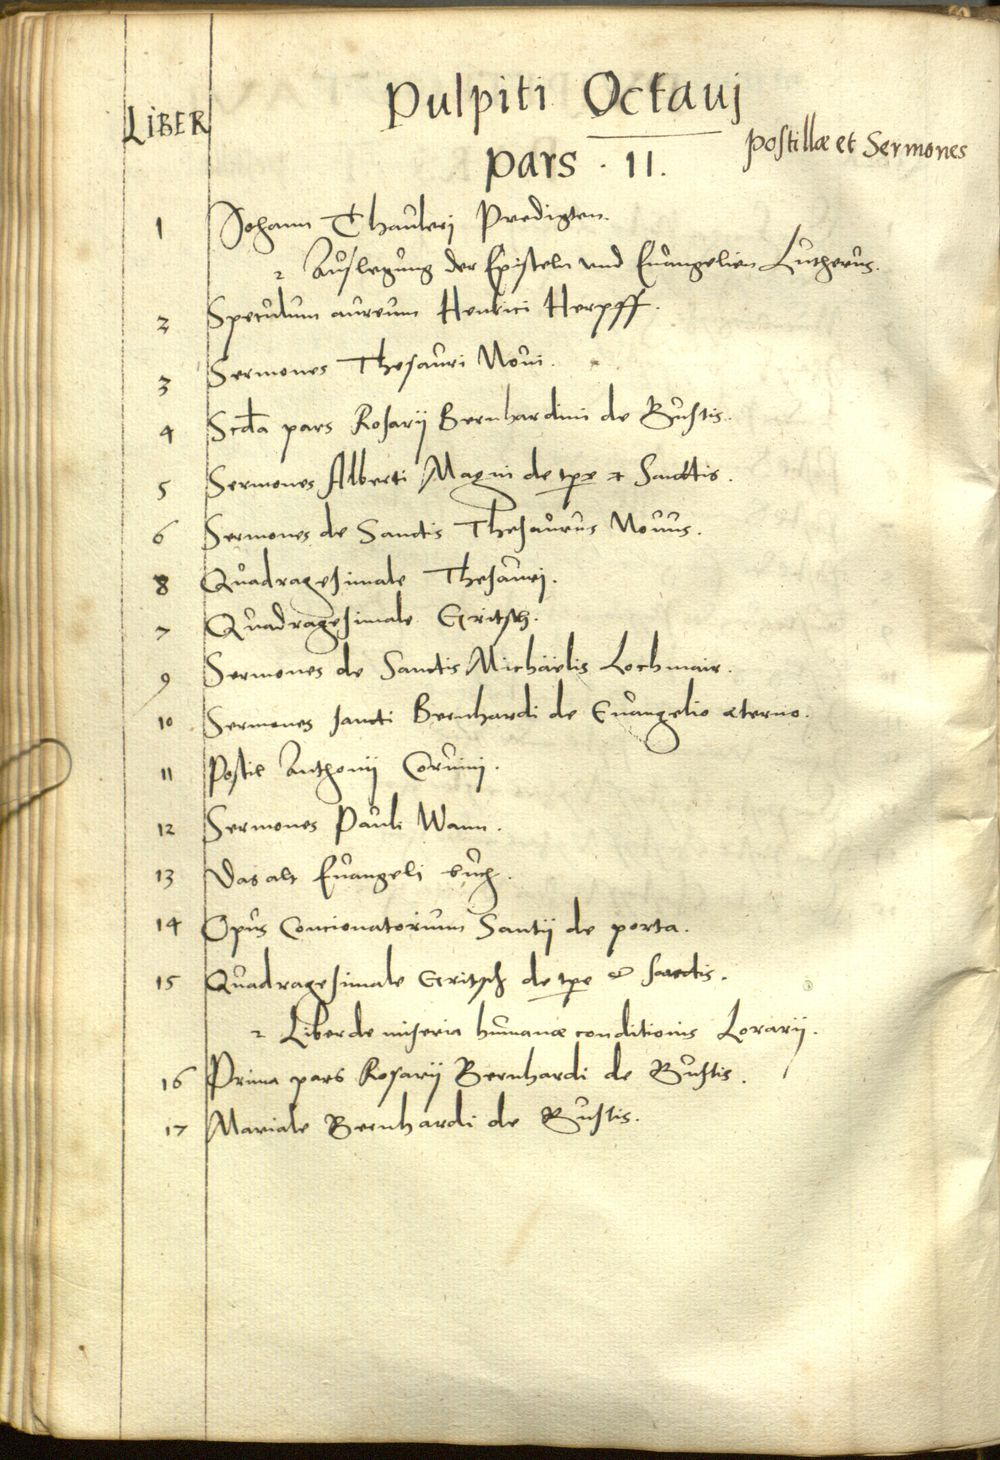 Pulpiti Octauj
LIBER
pars · II.
Postillæ et Sermones
1 Johann Thaulerj Predigten.
2 Auslegung der Episteln vnd Euangelien Lutherus.
2 Speculum aureum Henrici Herpff.
3 Sermones Thesauri Noui.
4 Scda pars Rosarij Bernhardini de Bustis.
5 Sermones Alberti Magni de tpe et Sanctis.
6 Sermones de Sanctis Thesaurus Nouus.
8 Quadragesimale Thesauri.
7 Quadragesimale Gritsch.
9 Sermones de Sanctis Michaëlis Lochmair.
10 Sermones sancti Bernhardi de Euangelio æterno.
11 Postil Anthonij Coruinij.
12 Sermones Pauli Wann.
13 Das alt Euangeli buch.
14 Opus Concionatorium Santij de porta.
15 Quadragesimale Gritsch de tpe et sanctis.
2 Liber de miseria humanæ conditionis Lorarij.
16 Prima pars Rosarij Bernhardi de Bustis.
17 Mariale Bernhardi de Bustis.